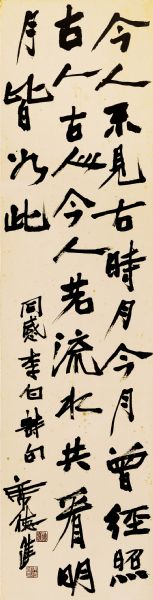 今人不見古時月今月曾經照
古人古人今人若流水共看明
月皆如此
同感李白詩句
席德進